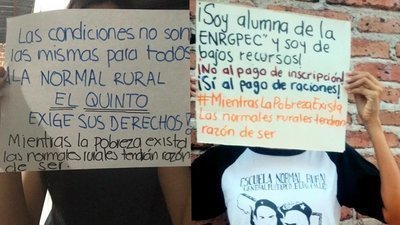 Las condiciones no son
las mismas para todos
¡LA NORMAL RURAL
EL QUINTO
EXIGE SUS DERECHOS!
Mientras la pobreza exista
las normales rurales tendrán razón
de ser.
¡Soy alumna de la
ENRGPEC y soy de
bajos recursos!
¡No al pago de inscripción!
¡Sí al pago de raciones!
#MientrasLaPobrezaExista
Las normales rurales tendrán
razón de ser
ESCUELA NORMAL RURAL
GENERAL PLUTARCO ELÍAS CALLES